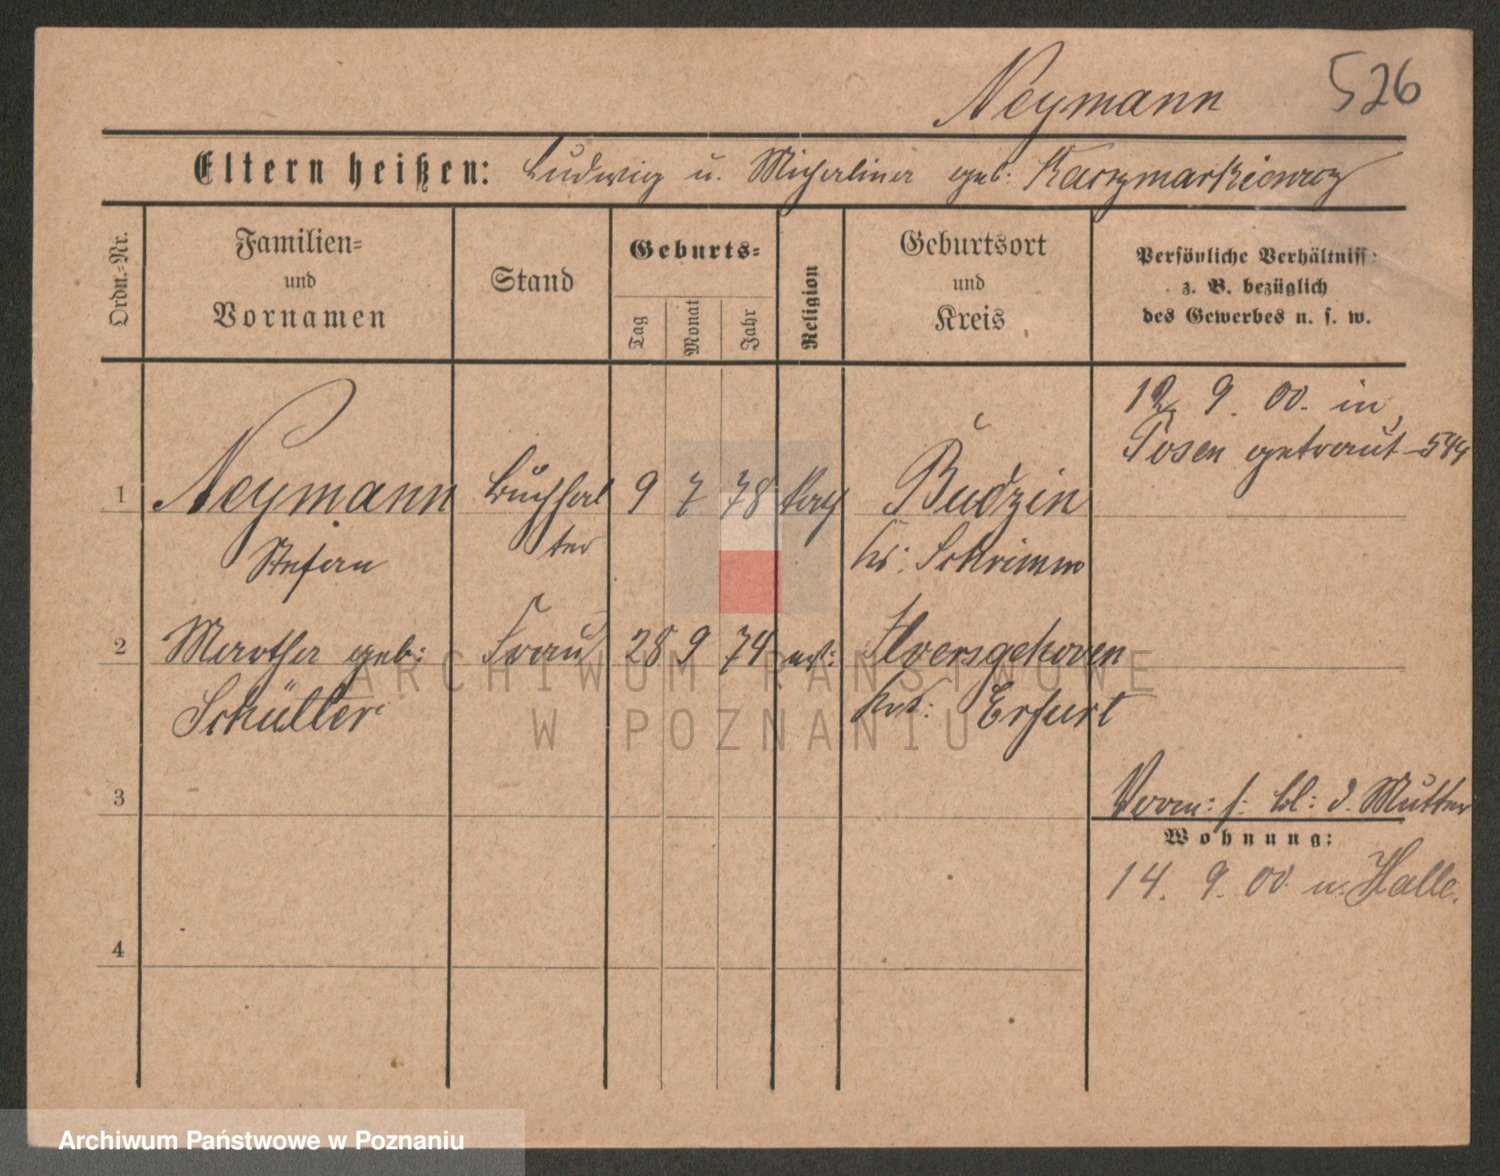 Neymann 526
Eltern heißen: Ludwig u. Michalina geb: Kaczmarkiewicz
Ordn.-Nr.
Familien-
und
Vornamen
Stand
Geburts-
Tag
Monat
Jahr
Religion
Geburtsort
und
Kreis
Persönliche Verhältniss:
z. B. bezüglich
des Gewerbes u. s. w.
12. 9. 00. in
Posen getraut - 544
1 Neymann Buchhal 9 7 78 Budzin
Stefan ter Kr: Schrimm
2 Martha geb: Frau 28 9 74 Ilversgehoven
Schüller Erfurt
3
d. Mutter
Wohnung:
14. 9. 00. n. Halle.
4
ARCHIWUM PAŃSTWOWE
W POZNANIU
Archiwum Państwowe w Poznaniu